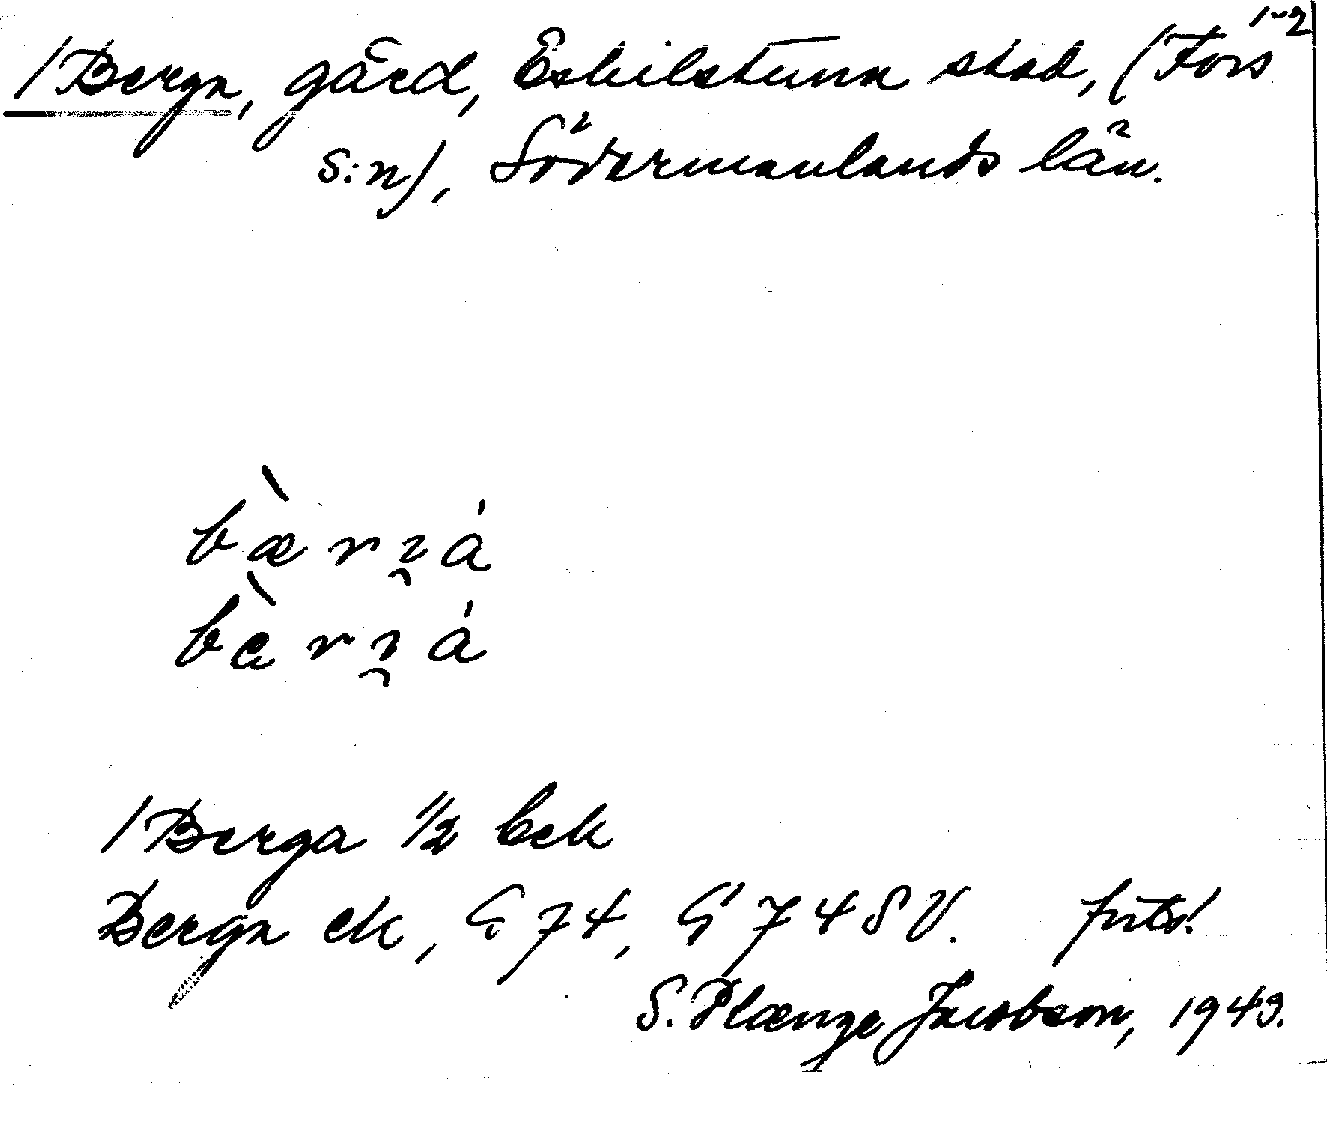 1-2
/Berga, gård, Eskilstuna stad, (Fors
s:n), Södermanlands län.
/Berga 1/2 bek
Berga ek, G 74, G 74 SV.
S. Plænge Jacobson, 1943.